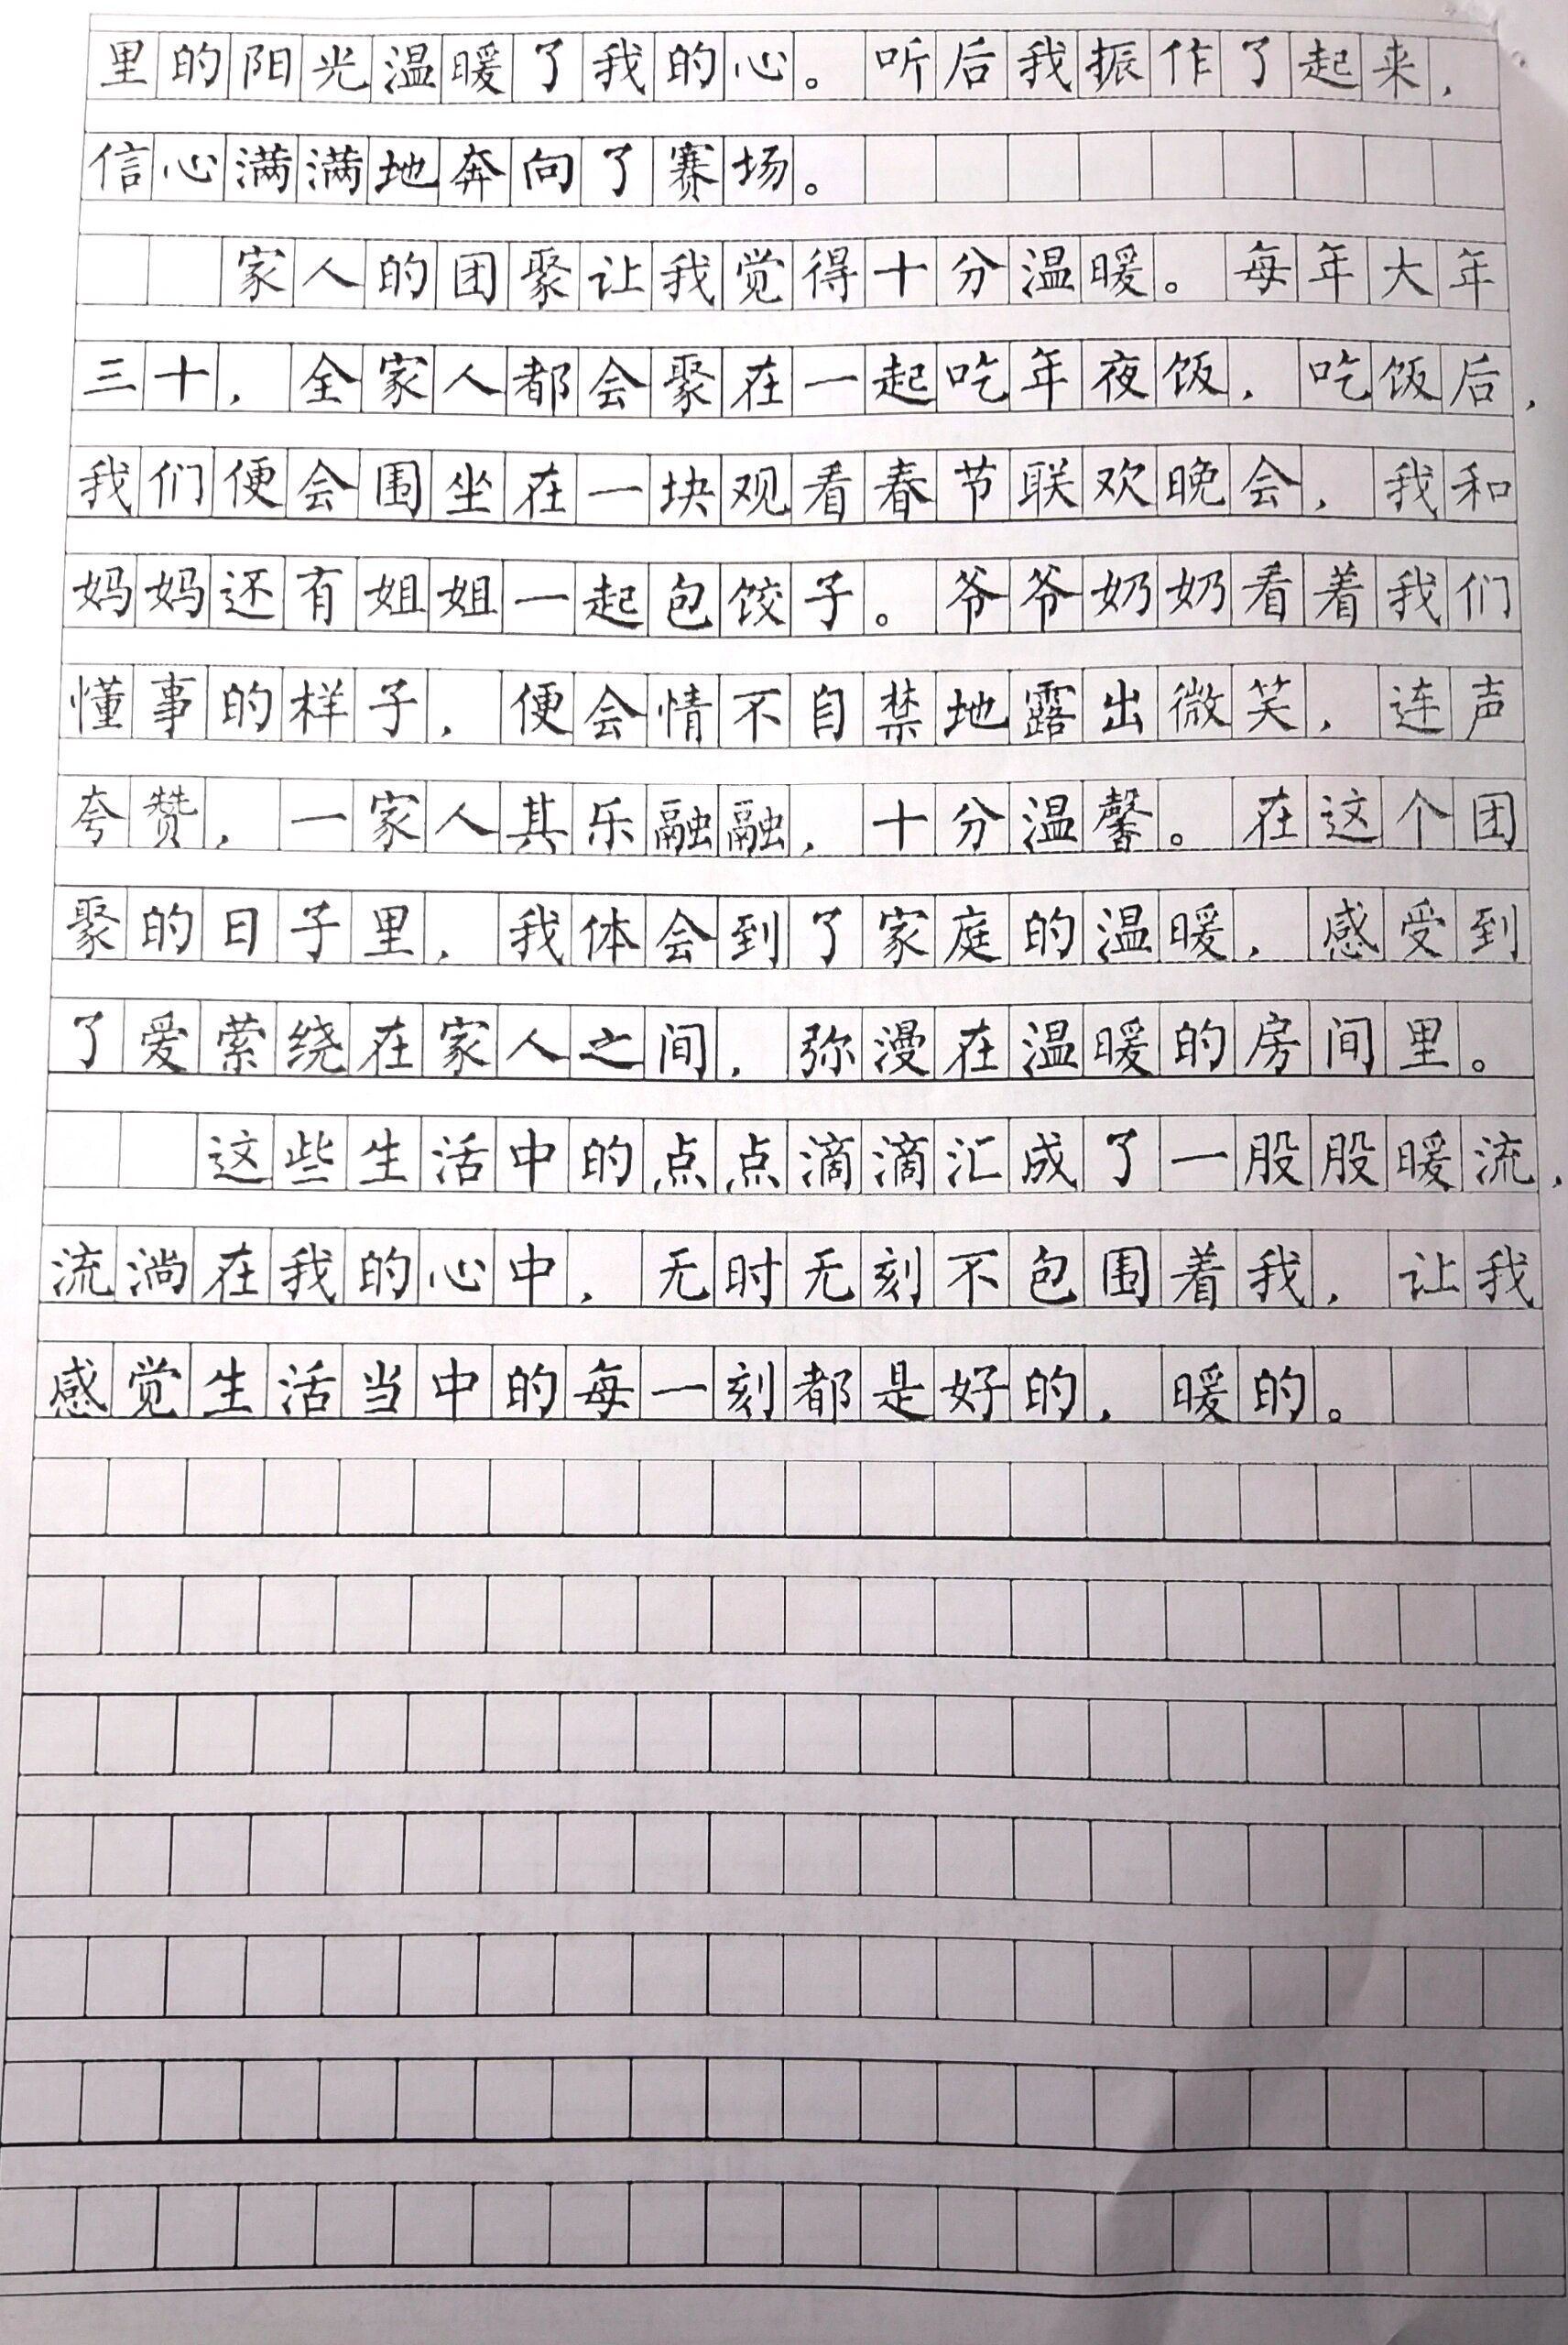 里的阳光温暖了我的心。听后我振作了起来，
信心满满地奔向了赛场。
家人的团聚让我觉得十分温暖。每年大年
三十，全家人都会聚在一起吃年夜饭，吃饭后，
我们便会围坐在一块观看春节联欢晚会，我和
妈妈还有姐姐一起包饺子。爷爷奶奶看着我们
懂事的样子，便会情不自禁地露出微笑，连声
夸赞，一家人其乐融融，十分温馨。在这个团
聚的日子里，我体会到了家庭的温暖，感受到
了爱萦绕在家人之间，弥漫在温暖的房间里。
这些生活中的点点滴滴汇成了一股股暖流，
流淌在我的心中，无时无刻不包围着我，让我
感觉生活当中的每一刻都是好的，暖的。